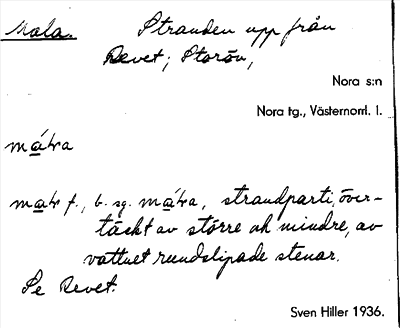 Mala. Stranden upp från
Revet; Storön,
Nora s:n
Nora tg., Västernorrl. l.
má̱lra
ma̱lr f., b. sg. má̱lra, strandparti, över-
täckt av större och mindre, av
vattnet rundslipade stenar.
Se Revet.
Sven Hiller 1936.